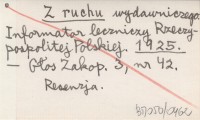 Z ruchu wydawniczego.
Informator leczniczy Rzeczy-
pospolitej Polskiej. 1925.
— Głos Zakop. 3, nr 42.
Recenzja.